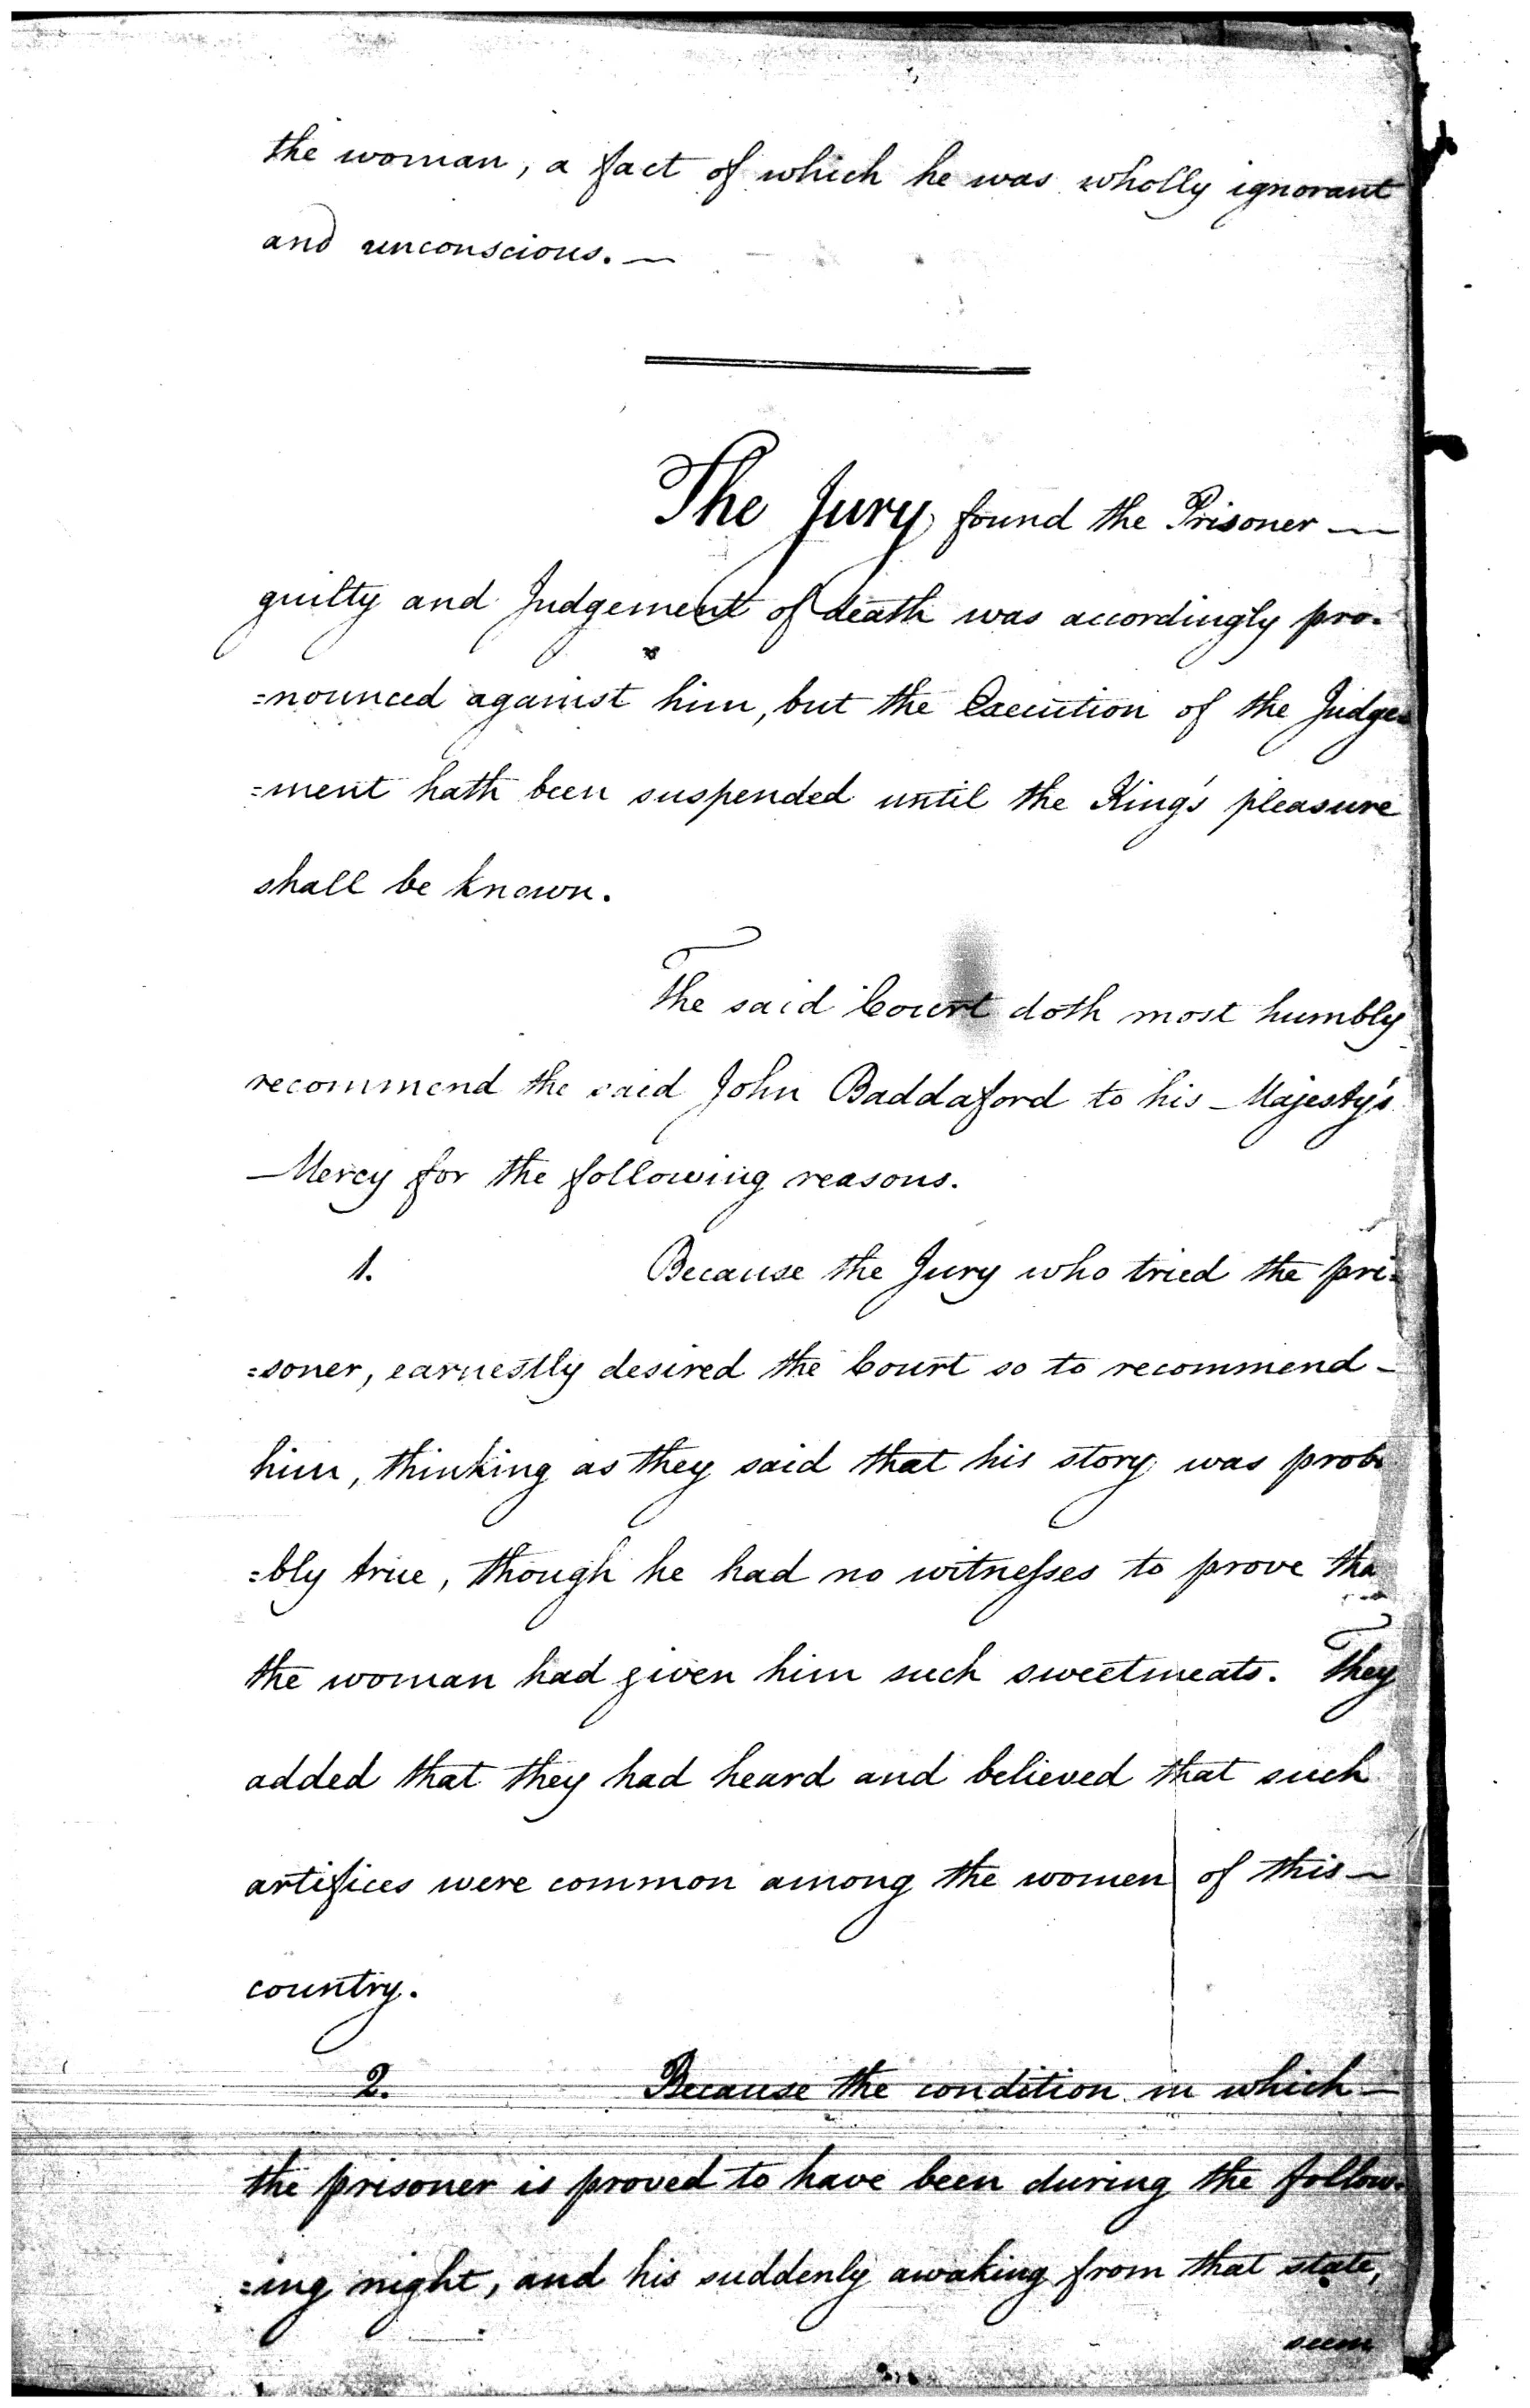 the woman, a fact of which he was wholly ignorant
and unconscious. —
The Jury found the Prisoner —
guilty and Judgement of death was accordingly pro-
=nounced against him, but the Execution of the Judge=
=ment hath been suspended until the King's pleasure
shall be known.
The said Court doth most humbly
recommend the said John Baddaford to his Majesty's
Mercy for the following reasons.
1. Because the Jury who tried the pri=
=soner, earnestly desired the Court so to recommend —
him, thinking as they said that his story was proba
=bly true, though he had no witnesses to prove tha
the woman had given him such sweetmeats. They
added that they had heard and believed that such
artifices were common among the women of this —
country.
2. Because the condition in which —
the prisoner is proved to have been during the follow=
=ing night, and his suddenly awaking from that state,
seem